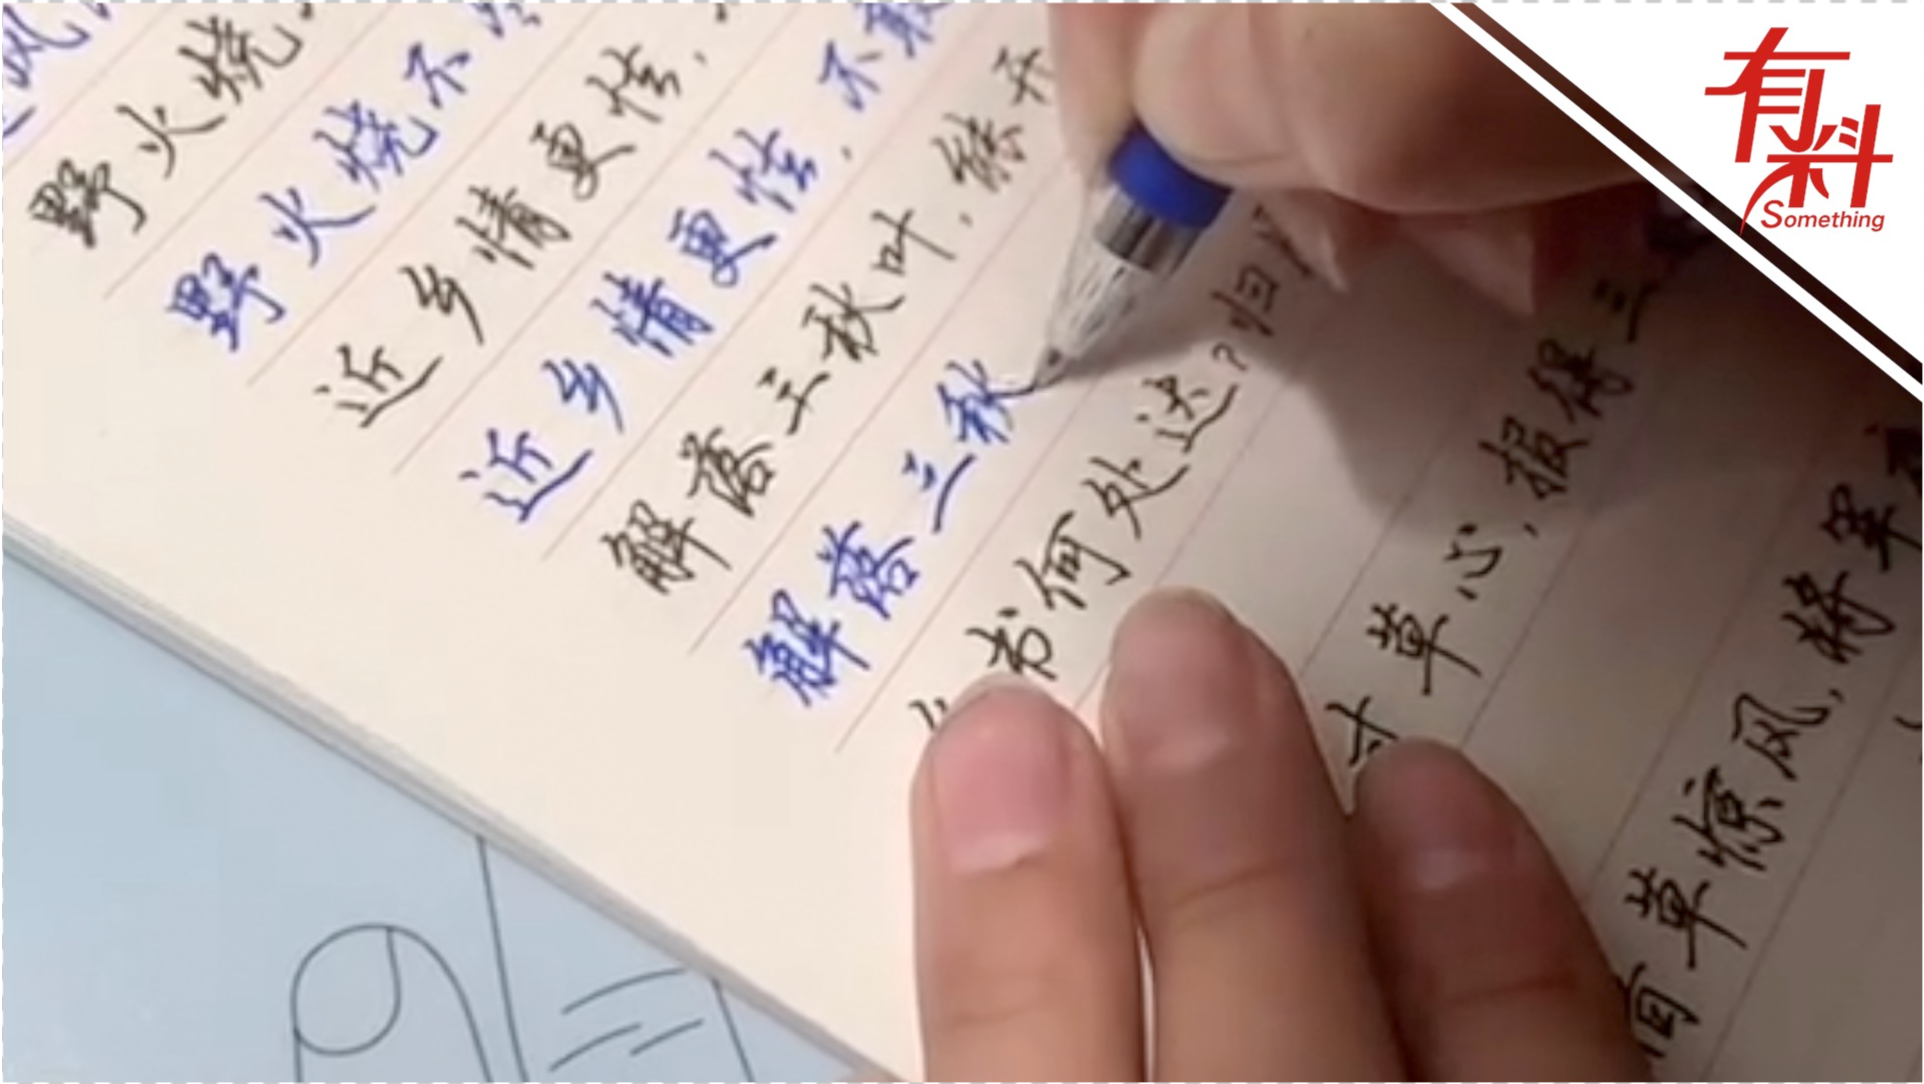 风
野火烧
野火烧不
近乡情更怯,
近乡情更怯,不敢
解落三秋叶,能开
解落三秋
书何处达?归
寸草心,报得三
草惊风,将军
有料
Something